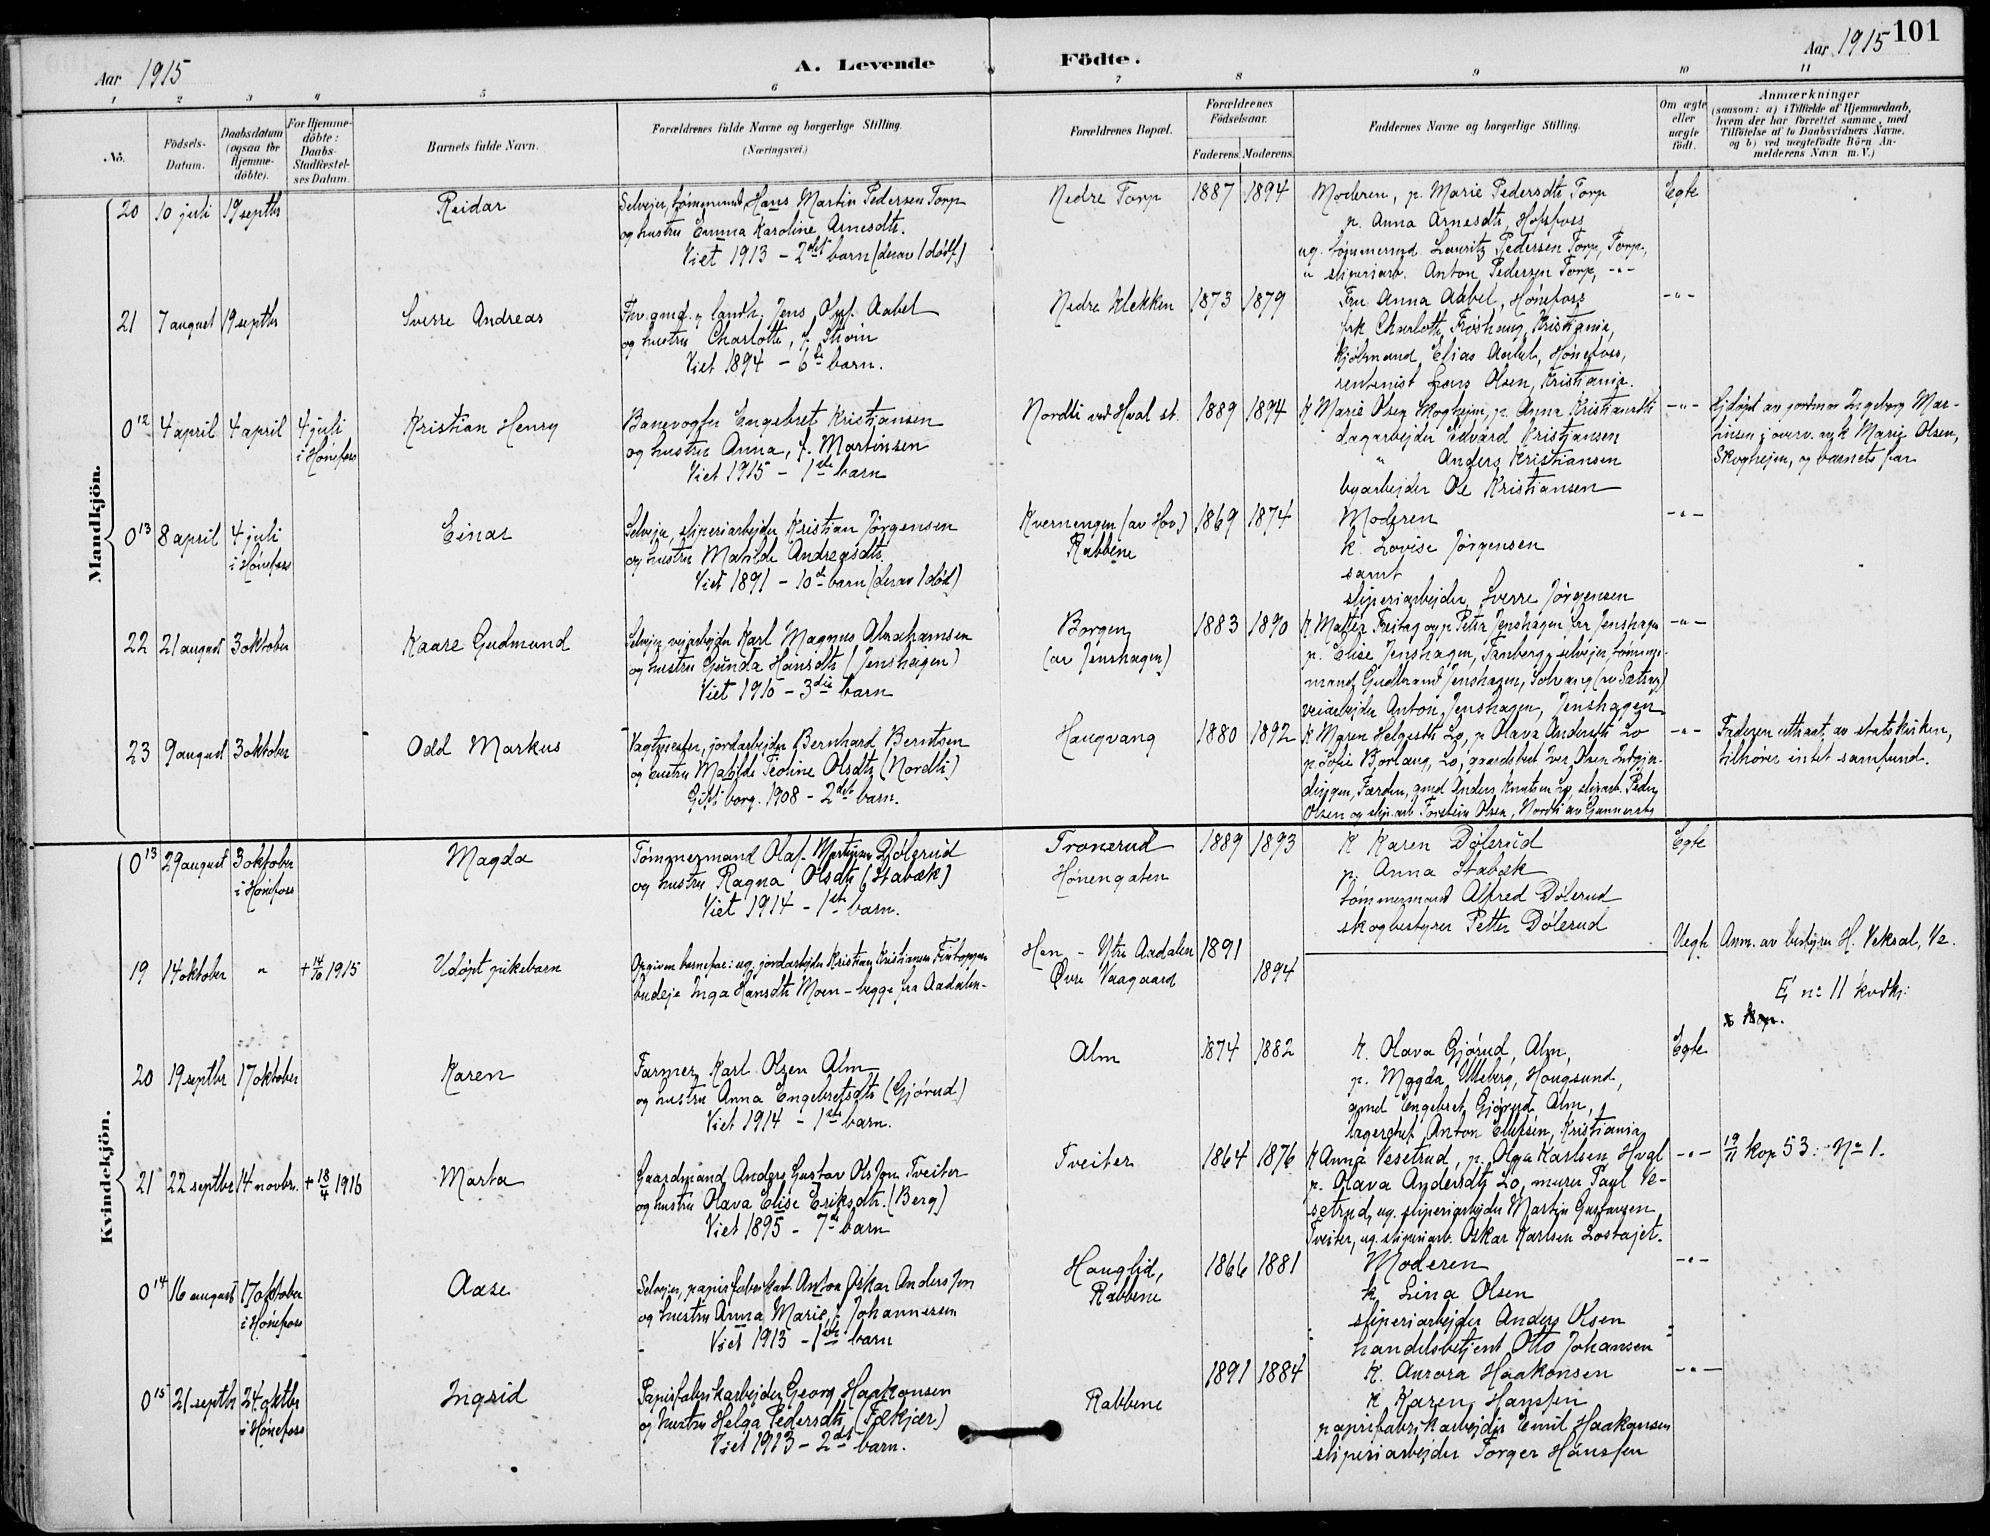 101
Aar 1915
A. Levende Födte.
Aar 1915
1 2 3 4 5 6 7 8 9 10 11
No.
Födsels-Datum.
Daabsdatum (ogsaa for Hjemmedöbte).
For Hjemmedöbte: Daabs-Stadfæstelses Datum.
Barnets fulde Navn.
Forældrenes fulde Navne og borgerlige Stilling.
(Næringsvei.)
Forældrenes Bopæl.
Forældrenes Födselsaar.
Faderens. Moderens.
Faddernes Navne og borgerlige Stilling.
Om ægte eller uægte födt.
Anmærkninger
(saasom: a) i Tilfælde af Hjemmedaab, hvem der har forrettet samme, med Tilföielse af to Daabsvidners Navne, og b) ved uægtefödte Börn Anmelderens Navn m. V.)
Mandkjön.
20 10 juli 19 septbr Reidar
Selveier, tømmermd Hans Martin Pedersen Torp
og hustru Emma Karoline Arnesdtr.
Viet 1913 - 2det barn (derav 1 dødf.)
Nedre Torp 1887 1894
Moderen, p. Marie Pedersdtr Torp
p. Anna Arnesdtr, Hofsfoss
ug. tømmermd Lauritz Pedersen Torp, Torp,
" sliperiarb. Anton Pedersen Torp, -"-
Egte
21 7 august 19 septbr Sverre Andreas
Fhv. gmd. og landh. Jens Aabel
og hustru Charlotte, f.
Viet 1894 - 6te barn.
Nedre Klekken 1873 1879
Fru Anna Aabel, Hønefoss
frk Charlotte Frøshaug, Kristiania,
kjøbmand Elias Aabel, Hønefoss,
rentenist Lars Olsen, Kristiania.
-"-
0 12 4 april 4 april 4 juli i Hønefoss Kristian Henry
Banevogter Engebret Kristiansen
og hustru Anna, f. Martinsen
Viet 1915 - 1ste barn
Nordli ved Hval st. 1889 1894
K Marie Olsen Skogheim, p. Anna Kristiansdtr
dagarbejder Edvard Kristiansen
" Anders Kristiansen
byarbejder Ole Kristiansen
-"-
Hjdøpt av jordmor Ingeborg Mar-
tinsen; overv. av k Marie Olsen,
og barnets far
0 13 8 april 4 juli i Hønefoss Einar
Selveier, sliperiarbejder Kristian Jørgensen
og hustru Matilde Andreasdtr
Viet 1891 - 10de barn (derav 1 død)
Kvernengen (av Hov) Rabbene 1869 1874
Moderen
k. Lovise Jørgensen
samt
sliperiarbejder Sverre Jørgensen
-"-
22 21 august 3 oktober Kaare Gudmund
Selveier veiarbejder Karl Magnus Abrahamsen
og hustru Gunda Hansdtr (Jenshagen)
Viet 1910 - 3die barn
Borgen (av Jenshagen) 1883 1890
K Mathea Freitag og p Petra Jenshagen, Jenshagen
p. Elise Jenshagen, Tanberg, selveier, tømmer-
mand Gudbrand Jenshagen, Solvang (av Sætrang)
veiarbejder Anton Jenshagen, Jenshagen
-"-
23 9 august 3 oktober Odd Markus
jordarbejder Bernhard Berntsen
og hustru Matilde Teoline Olsdtr (Nordli)
Gift borg. 1908 - 2det barn.
Haugvang 1880 1892
K Maren Helgesdtr Lo, p Olava Andersdtr Lo
p. Sofie Borlaug, Lo, gaardsbest Iver Olsen
Færden, gmd Anders Knutsen Lo, sliparb. Peder
Olsen og slip.arb Torstein Olsen, Nordli av
-"-
Faderen uttraat av statskirken,
tilhører intet samfund.
Kvindekjön.
0 13 29 august 3 oktober i Hønefoss Magda
Tømmermand Olaf Martinsen Dølerud
og hustru Ragna Olsdtr (Stabæk)
Viet 1914 - 1ste barn.
Tronerud Hønengaten 1889 1893
K Karen Dølerud
p. Anna Stabæk
tømmermand Alfred Dølerud
skogbestyrer Petter Dølerud
Egte
19 14 oktober " + 14/10 1915 Udøpt pikebarn
Opgiven barnefar: ug. jordarbejder Kristian Kristiansen
budeje Inga Hansdtr Moen - begge fra Aadalen.
Hen - Ytre Aadalen 1891
Øvre Vaagaard 1894
Uegte
Anm. av bestyrer H. Veksal,
E, no 11 kvdkj.
20 19 septbr 17 oktober Karen
Farmer Karl Olsen Alm
og hustru Anna Engebretsdtr (Gjørud)
Viet 1914 - 1ste barn.
Alm 1874 1882
K. Olava Gjørud, Alm,
p. Magda Ulleberg, Hougsund,
gmd Engebret Gjørud, Alm,
lagerchef Anton Ellefsen, Kristiania
Egte
21 22 septbr 14 novbr. + 18/4 1916 Marta
Gaardmand Anders Gustav Olsson Tveiter
og hustru Olava Elise Eriksdtr. (Berg)
Viet 1895 - 7de barn
Tveiter 1864 1876
K Anna Vesetrud, p. Olga Karlsen Hval
p. Olava Andersdtr Lo, murer Paul Ve-
setrud, ug. sliperiarbejder Martin Gustavsen
Tveiter, ug. sliperiarb. Oskar Karlsen
-"-
19/11 kop 53: No 1.
0 14 16 august 17 oktober i Hønefoss Aase
Selveier, papirfabrikarb. Anton Oskar Anderssen
og hustru Anna Marie f. Johannesen
Viet 1913 - 1ste barn
Hauglid, Rabbene 1866 1881
Moderen
k Lina Olsen
sliperiarbejder Anders Olsen
handelsbetjent Otto Johansen
-"-
0 15 21 septbr 24 oktbr i Hønefoss Ingrid
Papirfabrikarbejder Georg Haakonsen
og hustru Helga Pedersdtr (Fækjær)
Viet 1913 - 2det barn.
Rabbene 1891 1884
K. Aurora Haakonsen
k Karen Hanssen
papirfabrikarbejder Emil Haakonsen
sliperiarbejder Torger Hanssen
-"-